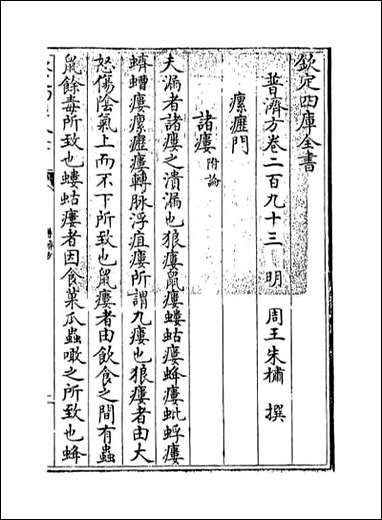 欽定四庫全書
普濟方卷二百九十三 明 周王朱橚 撰
瘰癧門
諸瘻 附論
夫漏者諸瘻之潰漏也狼瘻鼠瘻螻蛄瘻蜂瘻蚍蜉瘻
蠐螬瘻瘰癧瘻轉脉浮疽瘻所謂九瘻也狼瘻者由大
怒傷陰氣上而不下所致也鼠瘻者由飲食之間有蟲
鼠餘毒所致也螻蛄瘻者因食菓瓜蟲噉之所致也蜂